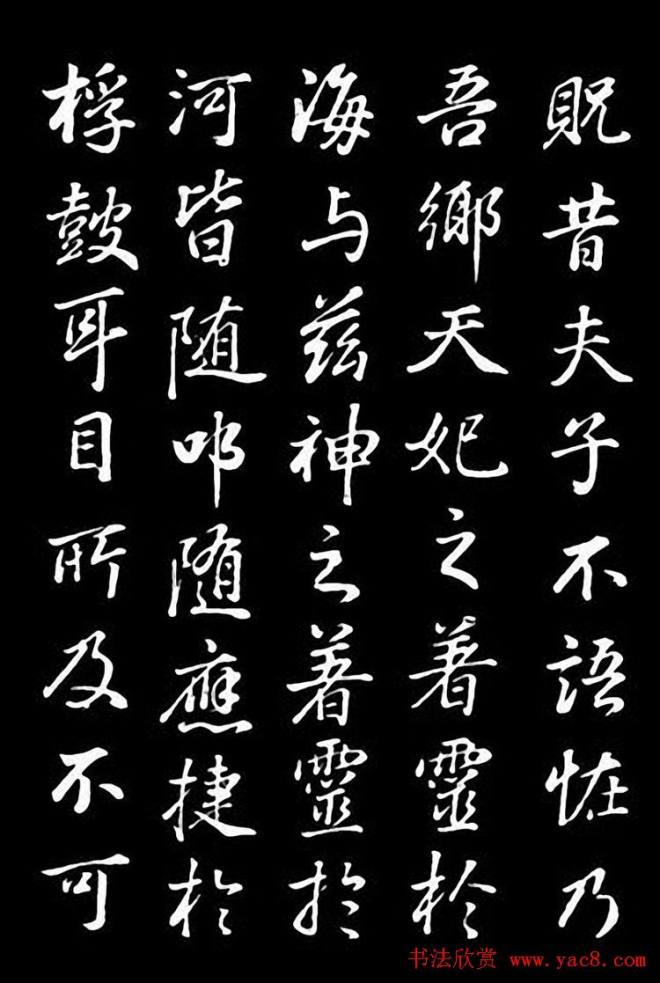 貺昔夫子不語怪乃
吾鄉天妃之著靈於
海与兹神之著靈於
河皆随叩随應捷於
桴鼓耳目所及不可
书法欣赏 www.yac8.com